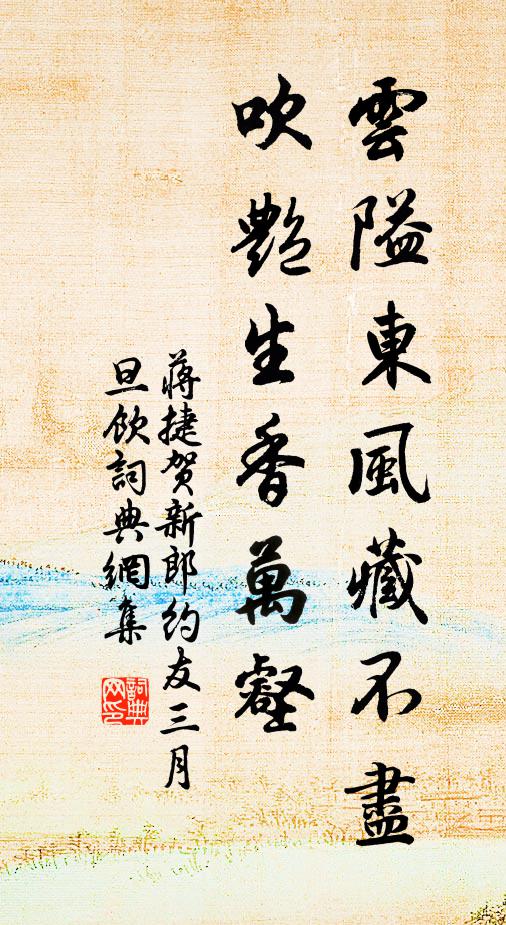 雲隘東風藏不盡
吹艷生香萬壑
蔣捷賀新郎約友三月
旦飲詞典網集
詞典
网印